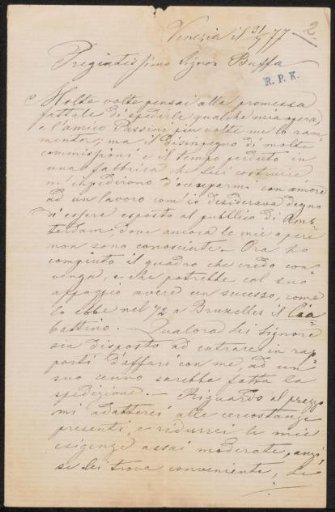 Venezia il 31/7 77
2
Pregiatissimo Signor Buffa
R. P. K.
Molte volte pensai alla promessa
fattale di spedirle qualche mia opera,
e l'amico Passini più volte me lo ram-
mentò; ma il disimpegno di molte
commissioni e il tempo perduto in
una fabbrica che feci costruire
mi impedirono d'occuparmi con amore
ad un lavoro com'io desiderava degno
d'essere esposto al pubblico di Am-
sterdam, dove ancora le mie opere
non sono conosciute. Ora ho
compiuto il quadro che credo con-
venga, e che potrebbe col suo
appoggio avere un successo, come
lo ebbe nel a Bruxelles il
Qualora Lei Signore
sia disposto ad entrare in rap-
porti d'affari con me, ad un
suo cenno sarebbe fatta la
spedizione. — Riguardo al prezzo
mi adatterei alle circostanze
presenti, e ridurrei le mie
esigenze assai moderate, anzi
se Lei trova conveniente,